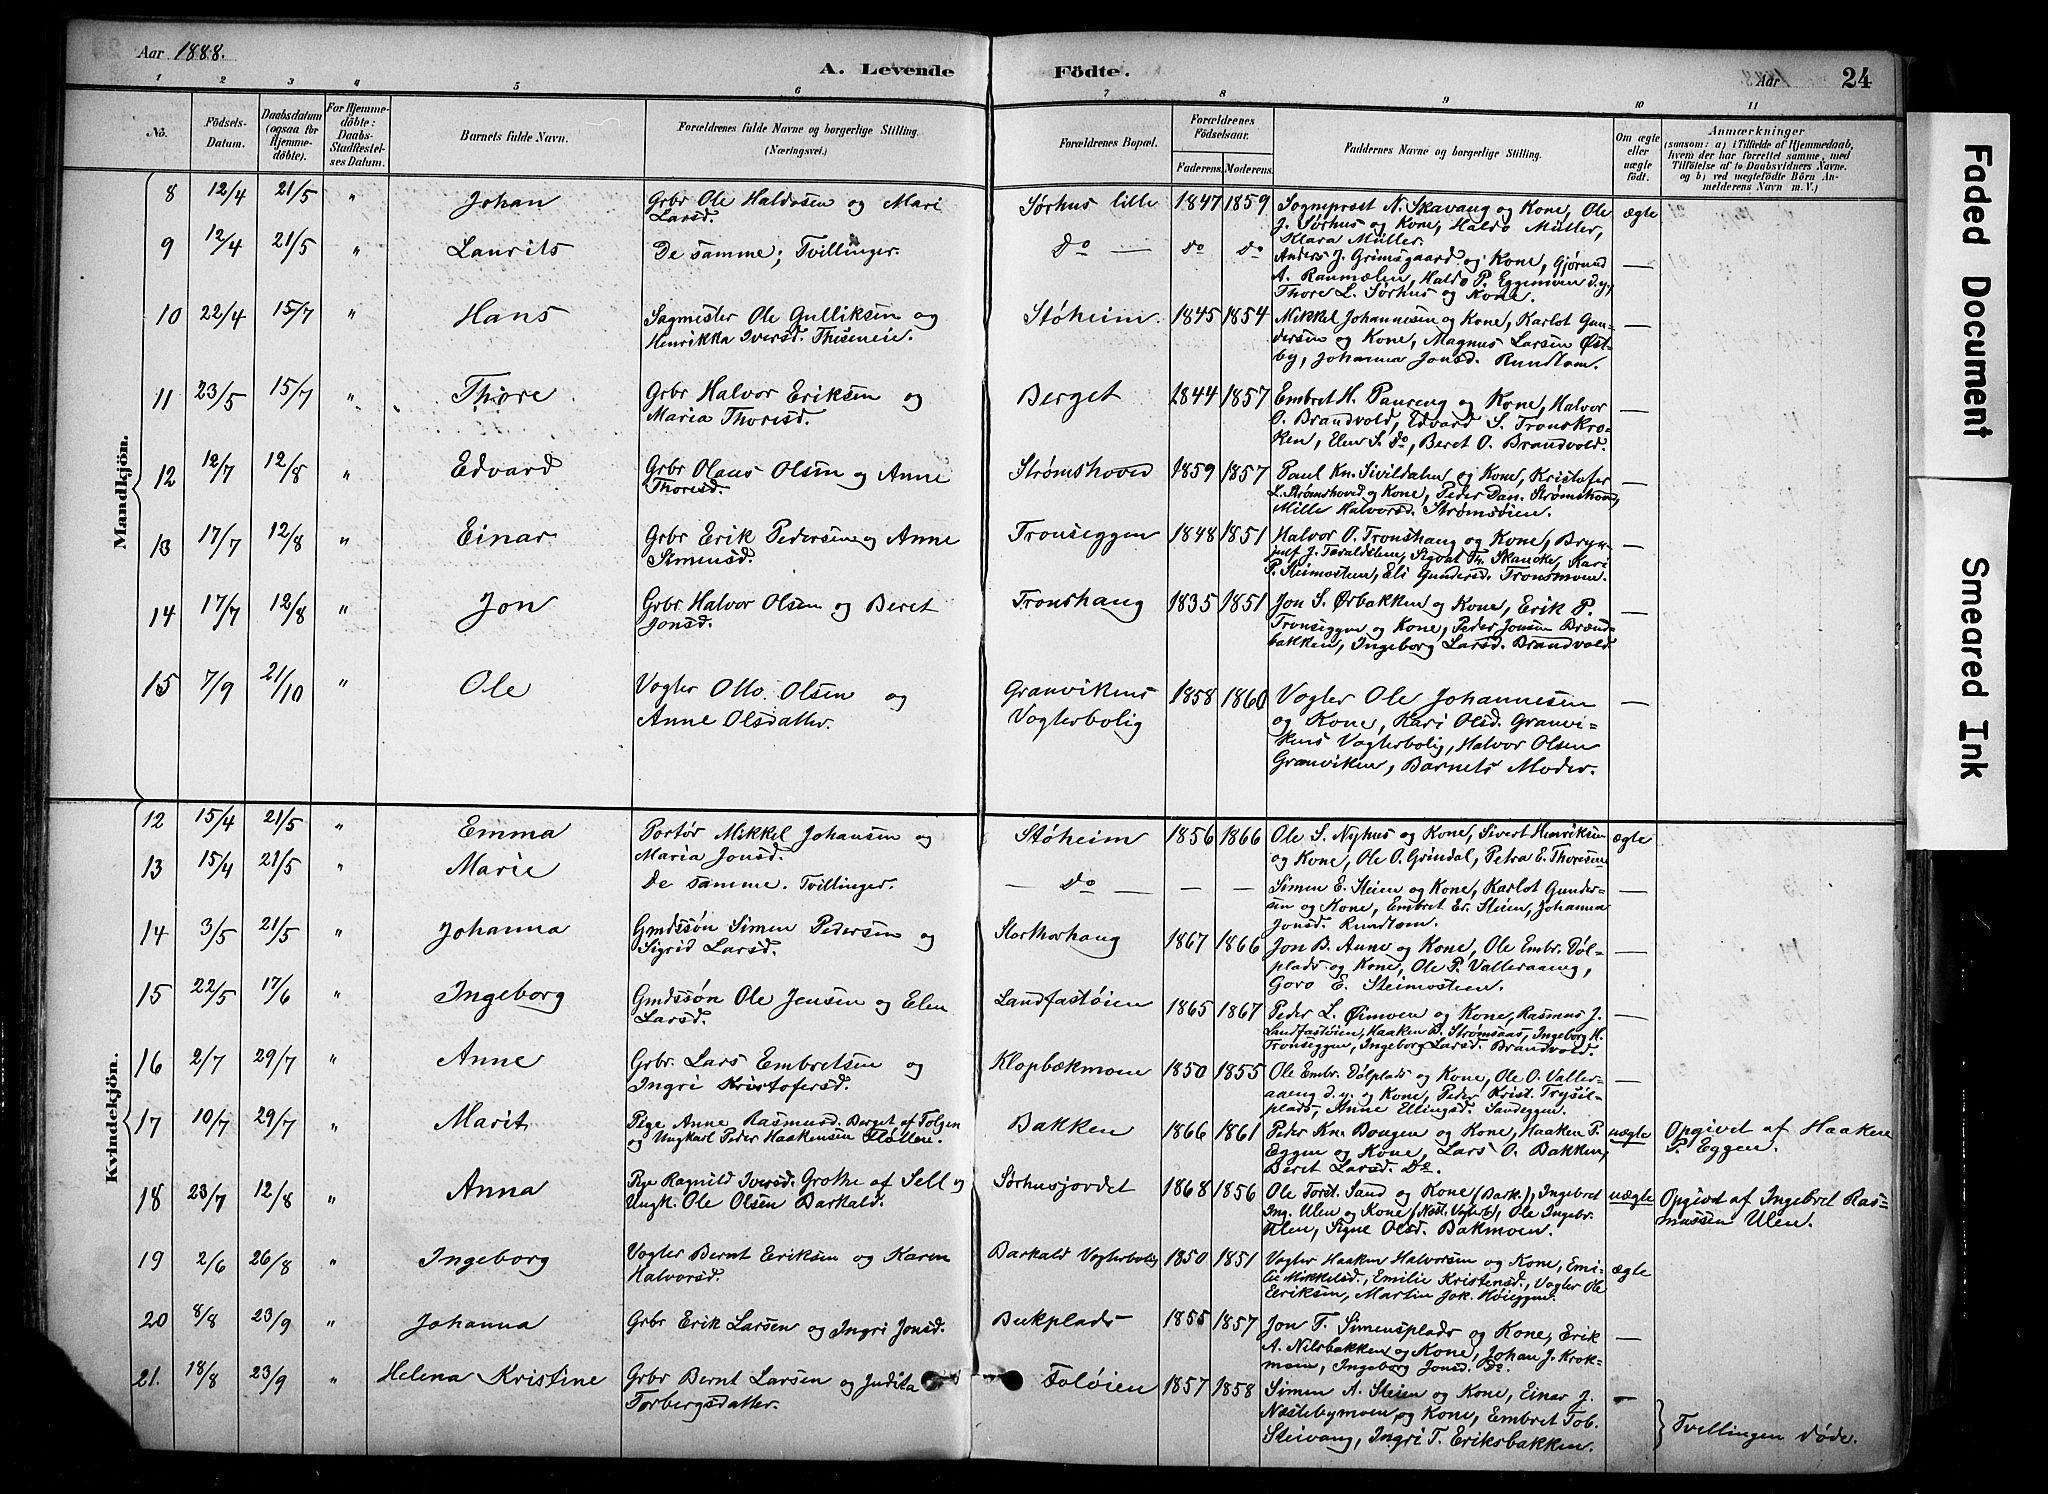 Aar 1888.
A. Levende Födte.
Aar 24
1 2 3 4 5 6 7 8 9 10 11
No. Födsels-Datum. Daabsdatum (ogsaa for Hjemmedöbte). For Hjemmedöbte: Daabs-Stadfæstelses Datum. Barnets fulde Navn. Forældrenes fulde Navne og borgerlige Stilling. (Næringsvei.) Forældrenes Bopæl. Forældrenes Födselsaar. Faderens. Moderens. Faddernes Navne og borgerlige Stilling. Om ægte eller uægte födt. Anmærkninger
(saasom: a) i Tilfælde af Hjemmedaab,
hvem der har forrettet samme, med
Tilföielse af to Daabsvidners Navne.
og b) ved uægtefödte Börn Anmelderens Navn m. V.)
Mandkjön.
8 12/4 21/5 " Johan Grbr Ole Haldosen og Mari Sørhus lille 1847 1859 Sogneprest N. Skavang og Kone, Ole ægte
Larsd. J. Sørhus og Kone, Haldo Müller,
Klara Müller.
9 12/4 21/5 " Laurits De samme; Tvillinger. Do — Do Do Anders J. Grimsgaard og Kone, Gjørund —
A. Raumælen, Haldo P. Eggemoen d.y,
Thore L. Sørhus og Kone.
10 22/4 15/7 " Hans Sagmester Ole Gulliksen og Støheim. 1845 1854 Mikkel Johannesen og Kone, Karlot Gun- —
Henrikka Iversd. Thiseneie. dersen og Kone, Magnus Larsen Øst-
by, Johanna Jonsd. Rundtom.
11 23/5 15/7 " Thore Grbr Halvor Eriksen og Berget 1844 1857 Embret H. Paureng og Kone, Halvor —
Maria Thoresd. O. Brandvold, Edvard S. Tronskro-
ken, Elen S. Do, Beret O. Brandvold.
12 12/7 12/8 " Edvard Grbr Olaus Olsen og Anne Strømshoved 1859 1857 Paul Kn. Sivildalen og Kone, Kristofer —
Thoresd. L. Strømshoved og Kone, Peder Dan. Strømshoved,
Mille Halvorsd. Strømsøien.
13 17/7 12/8 " Einar Grbr Erik Pedersen og Anne Tronseggen 1848 1851 Halvor O. Tronshaug og Kone, Bryn- —
Simensd. julf J. Taraldslien, Sigvat Th. Skancke, Kari
P. Steimosteen, Eli Gundersd. Tronsmoen.
14 17/7 12/8 " Jon Grbr Halvor Olsen og Beret Tronshaug 1835 1851 Jon S. Ørbakken og Kone, Erik P. —
Jonsd. Tronseggen og Kone, Peder Jonsen Brænd-
bakken, Ingeborg Larsd. Brandvold
15 7/9 21/10 " Ole Vogter Otto Olsen og Granvikens 1858 1860 Vogter Ole Johannesen —
Anne Olsdatter. Vogterbolig og Kone, Kari Olsd. Granvi-
kens Vogterbolig, Halvor Olsen
Granviken, Barnets Moder.
Kvindekjön.
12 15/4 21/5 " Emma Portør Mikkel Johansen og Støheim 1856 1866 Ole S. Nyhus og Kone, Sivert Henriksen ægte
Maria Jonsd. og Kone, Ole O. Grindal, Petra E. Thoresen
13 15/4 21/5 " Marie De samme. Tvillinger. — Do — — — Simen E. Steien og Kone, Karlot Gunder- —
sen og Kone, Embret Er. Steien, Johanna
Jonsd. Rundtom.
14 3/5 21/5 " Johanna Gmdssøn Simen Pedersen og Storthorhaug 1867 1866 Jon B. Aune og Kone, Ole Embr. Døl- —
Sigrid Larsd. plads og Kone, Ole P. Valleraaeng,
Goro E. Steimosteen.
15 22/5 17/6 " Ingeborg Gmdssøn Ole Jensen og Elen Landfastøien 1865 1867 Peder L. Øimoen og Kone, Rasmus J. —
Larsd. Landfastøien, Haaken B. Strømsaas, Ingeborg H.
Tronseggen, Ingeborg Larsd. Brandvold.
16 2/7 29/7 " Anne Grbr. Lars Embretsen og Klopbækmoen 1850 1855 Ole Embr. Dølplads og Kone, Ole O. Valler- —
Ingri Kristofersd. aaeng d.y. og Kone, Peder Krist. Trysil-
plads, Anne Ellingsd. Sandeggen.
17 10/7 29/7 " Marit Pige Anne Rasmusd. Berget af Tolgen Bakken 1866 1861 Peder Kn. Bougen og Kone, Haaken P. uægte Opgivet af Haaken
og Ungkarl Peder Haakensen Fløtten. Eggen og Kone, Lars O. Bakken, P. Eggen.
Beret Larsd. Do.
18 23/7 12/8 " Anna Pige Ragnild Iversd. Grothe af Sell og Sørhusjordet 1868 1856 Ole Torst. Sand og Kone (Bark.), Ingebret uægte Opgivet af Ingebret Ras-
Ungk. Ole Olsen Barkald. Ing. Ulen og Kone (Nøst. Vogterb), Ole Ingebr. mussen Ulen.
Ulen, Signe Olsd. Bakmoen.
19 2/6 26/8 " Ingeborg Vogter Bernt Eriksen og Karen Barkald Vogterbolig 1850 1851 Vogter Haaken Halvorsen og Kone, Emi- ægte
Halvorsd. lie Mikkelsd., Emilie Kristensd., Vogter Ole
Eriksen, Martin Jok. Høieggen.
20 8/8 23/9 " Johanna Grbr Erik Larsen og Ingri Jonsd. Bukplads 1855 1857 Jon T. Simensplads og Kone, Erik —
A. Nilsbakken og Kone, Johan J. Krok-
moen, Ingeborg Jonsd. Do.
21. 18/8 23/9 " Helena Kristine Grbr Bernt Larsen og Judita Toløien 1857 1858 Simen A. Steien og Kone, Einar J. —
Torbergsdatter. Næstebymoen og Kone, Embret Tob. Tvillingen døde.
Steivang, Ingri T. Eriksbakken.
Faded Document
Smeared Ink